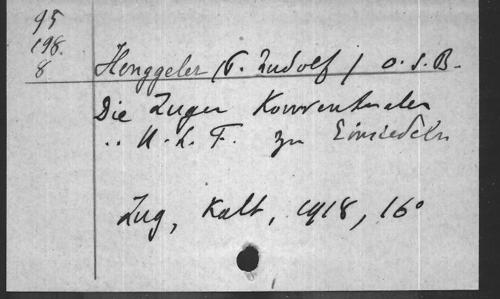 95
198.
8
Henggeler (P. Rudolf) O.S.B.
Die Zuger Konventualen
.. U. L. F. zu Einsiedeln
Zug, Kalt, 1918, 16°